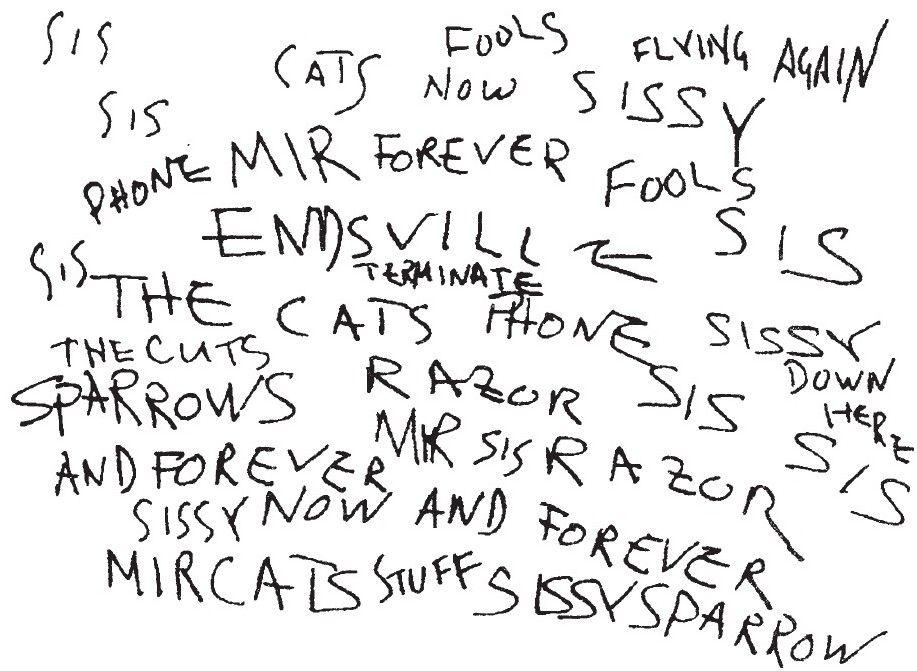 SIS CATS FOOLS FLYING AGAIN
SIS NOW SISSY
PHONE MIR FOREVER FOOLS
ENDSVILL ← SIS
SIS TERMINATE
THE CATS PHONE SISSY
THE CUTS DOWN
SPARROWS RAZOR SIS HERE
AND FOREVER MIR SIS RAZOR SIS
SISSY NOW AND FOREVER
MIR CATS STUFF SISSY SPARROW